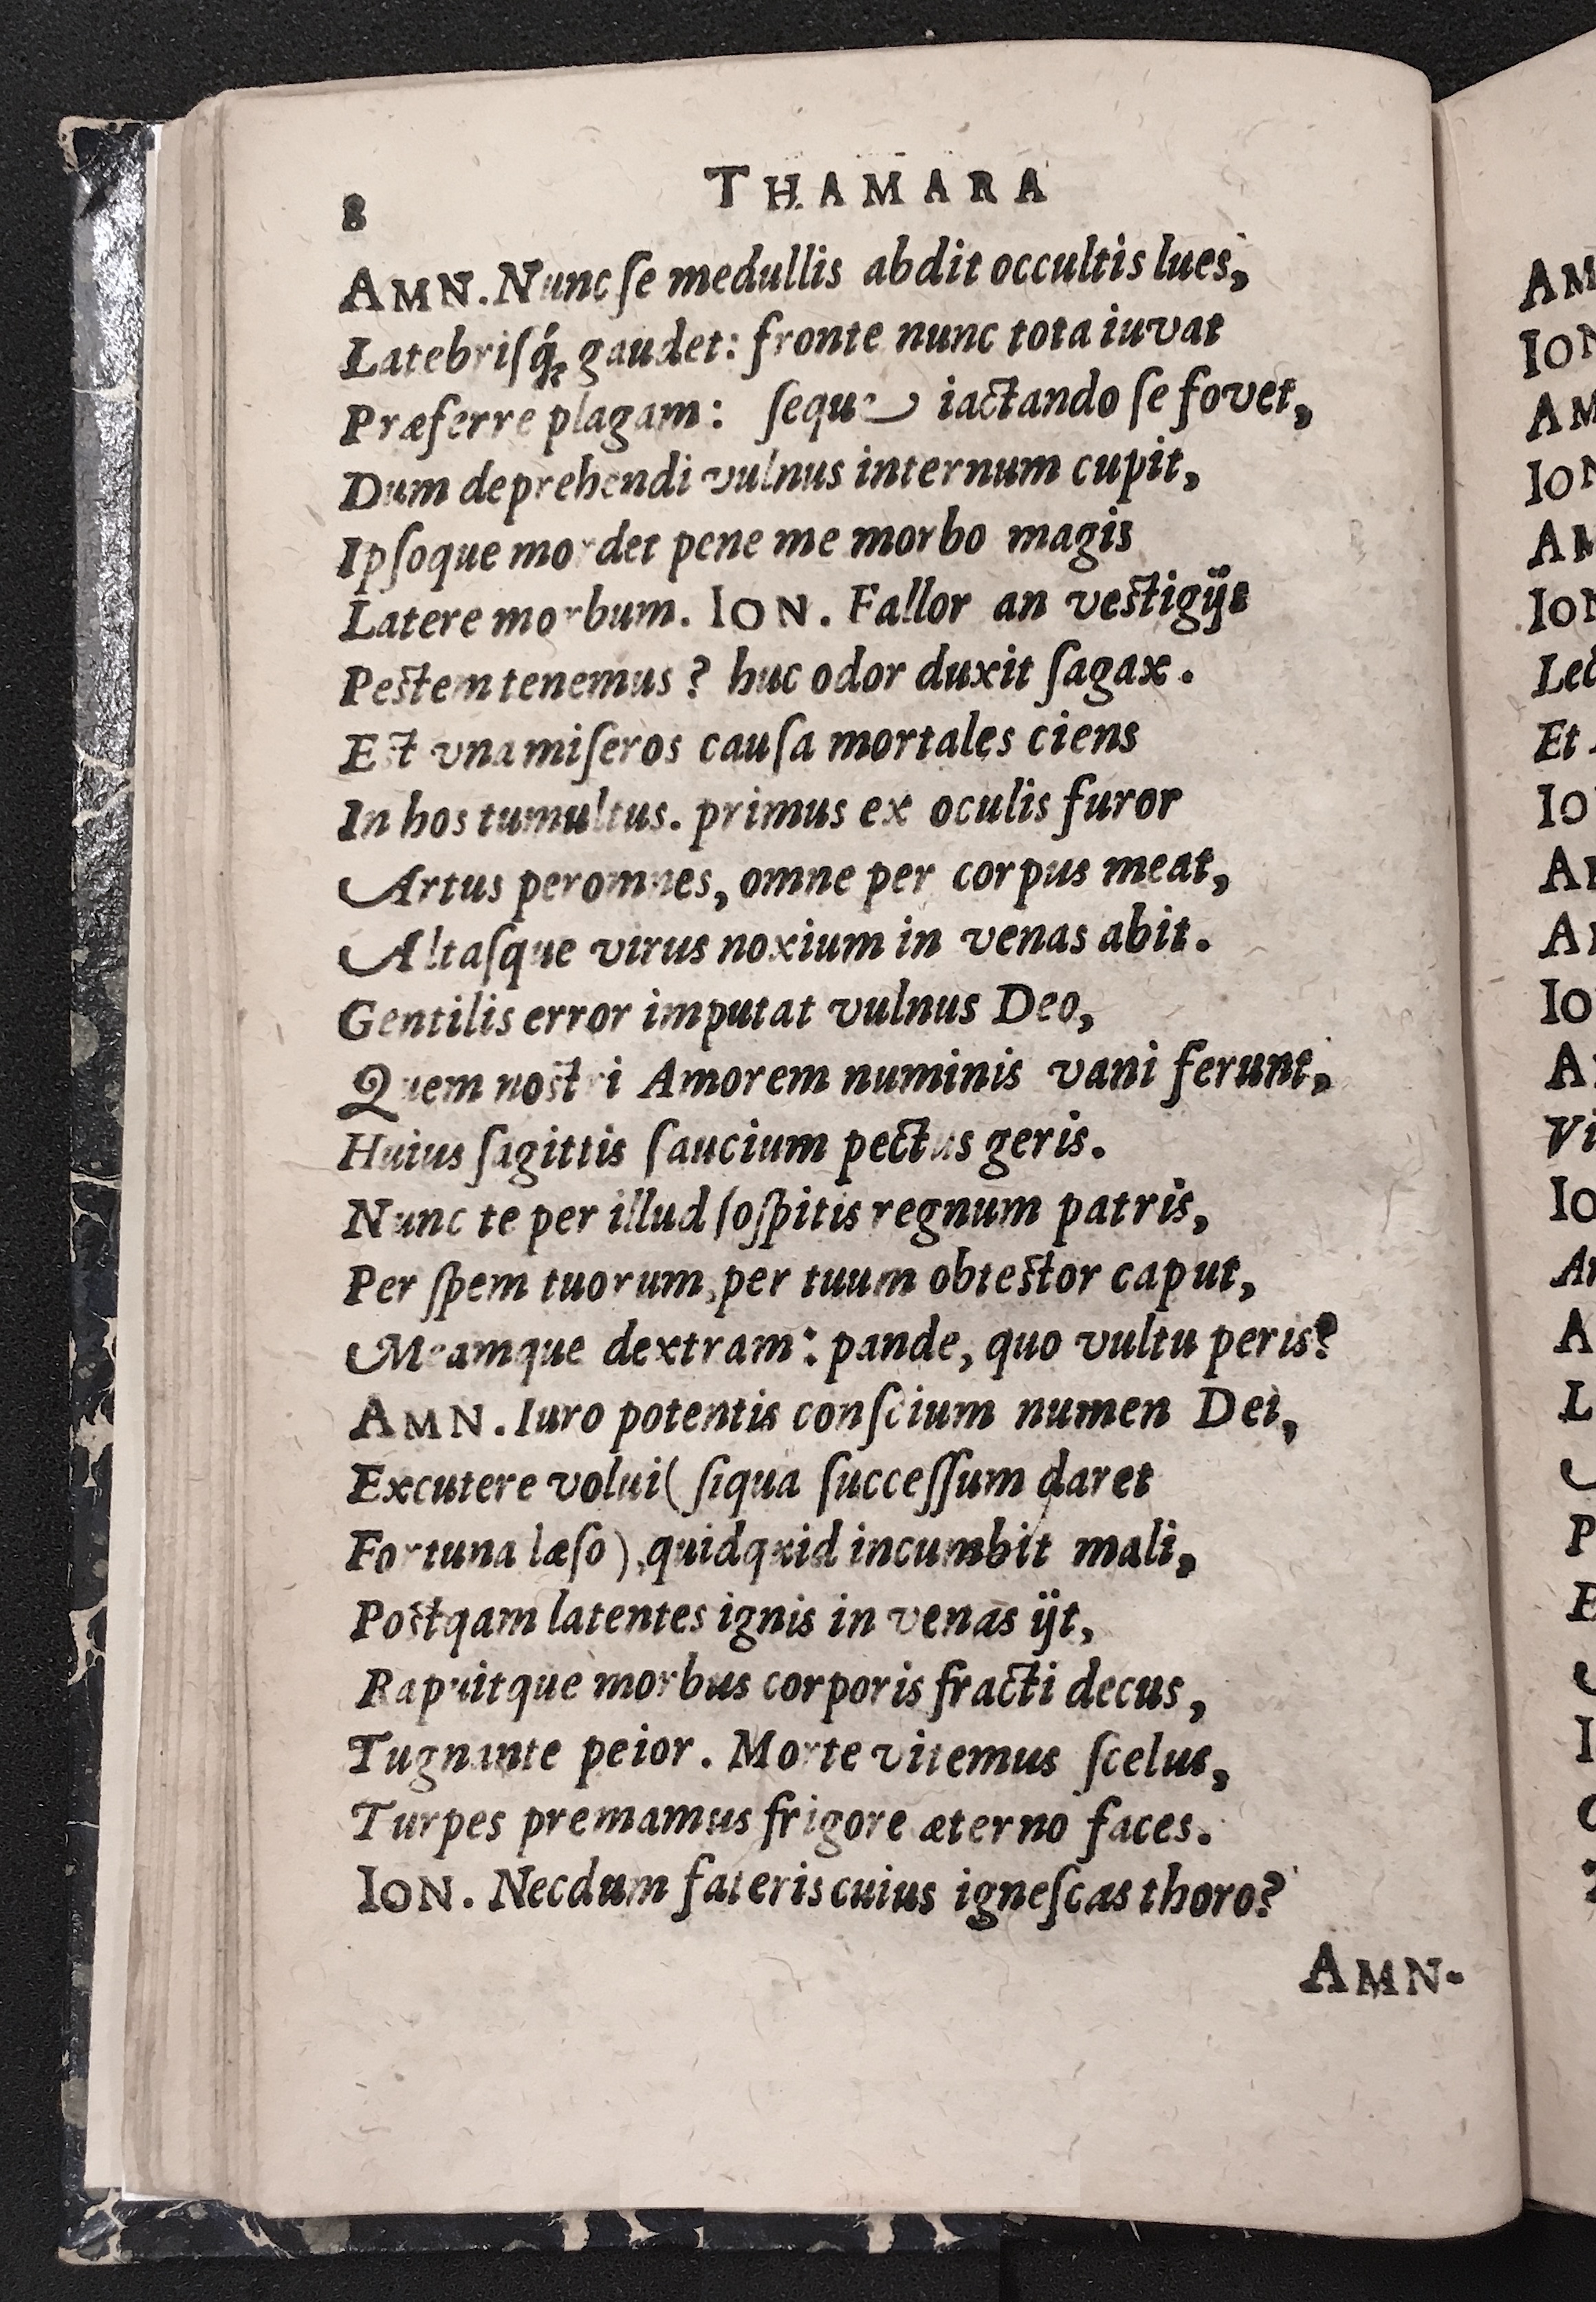 8 THAMARA
AMN. Nunc ſe medullis abdit occultis lues,
Latebriſq́; gaudet: fronte nunc tota iuvat
Præferre plagam: ſeque iactando ſe fovet,
Dum deprehendi vulnus internum cupit,
Ipſoque mordet pene me morbo magis
Latere morbum. ION. Fallor an veſtigijs
Peſtem tenemus? huc odor duxit ſagax.
Eſt vna miſeros cauſa mortales ciens
In hos tumultus. primus ex oculis furor
Artus per omnes, omne per corpus meat,
Altaſque virus noxium in venas abit.
Gentilis error imputat vulnus Deo,
Quem noſtri Amorem numinis vani ferunt,
Huius ſagittis ſaucium pectus geris.
Nunc te per illud ſoſpitis regnum patris,
Per ſpem tuorum, per tuum obteſtor caput,
Meamque dextram: pande, quo vultu peris?
AMN. Iuro potentis conſcium numen Dei,
Excutere volui ( ſiqua ſucceſſum daret
Fortuna læſo ), quidquid incumbit mali,
Poſtqam latentes ignis in venas ijt,
Rapuitque morbus corporis fracti decus,
Tugnante peior. Morte vitemus ſcelus,
Turpes premamus frigore æterno faces.
ION. Necdum fateris cuius igneſcas thoro?
AMN-
AM
ION
AM
ION
AM
ION
Lec
Et
IO
AM
AM
IO
A
Vi
IO
A
L
P
E
I